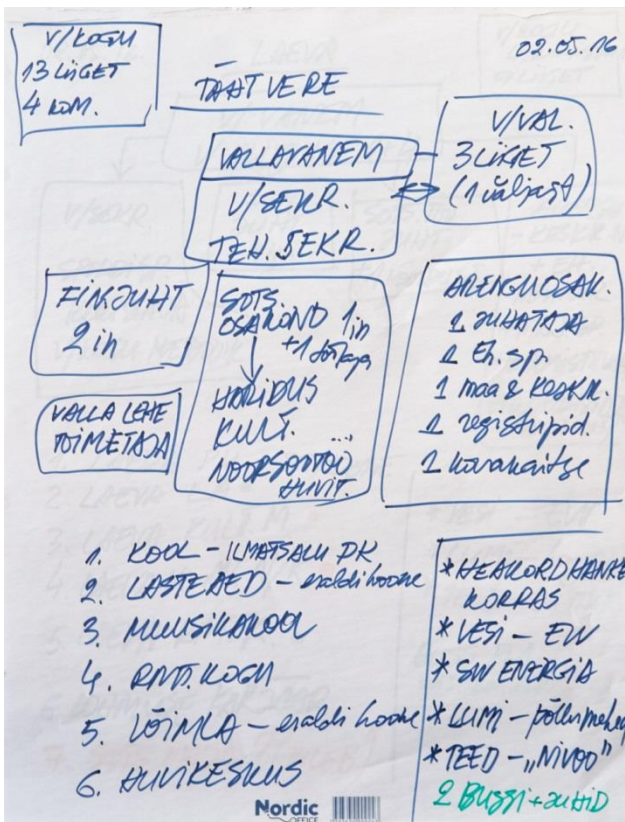 V/KOGU
13 LIIGET
4 KOM.
02.05.16
TÄHTVERE
VALLAVANEM
V/SEKR.
TEH. SEKR.
V/VAL.
3 LIIGET
(1 väljast)
FINJUHT
2 in
VALLA LEHE
TOIMETAJA
SOTS.
OSAKOND 1 in
+1 töötaja
HARIDUS
KULT. ...
NOORSOOTÖÖ
HUVIT.
ARENGUOSAK.
1 JUHATAJA
1 Eh. sp.
1 maa & KESKK.
1 registripid.
1 korrakaitse
1. KOOL – ILMATSALU PK
2. LASTEAED – eraldi hoone
3. MUUSIKAKOOL
4. RMT. KOGU
5. VÕIMLA – eraldi hoone
6. HUVIKESKUS
*HEAKORD HANKE
KORRAS
*VESI – EW
*SW ENERGIA
*LUMI – põllumehed
*TEED – „NIVOO"
2 BUSSI + JUHID
Nordic
OFFICE